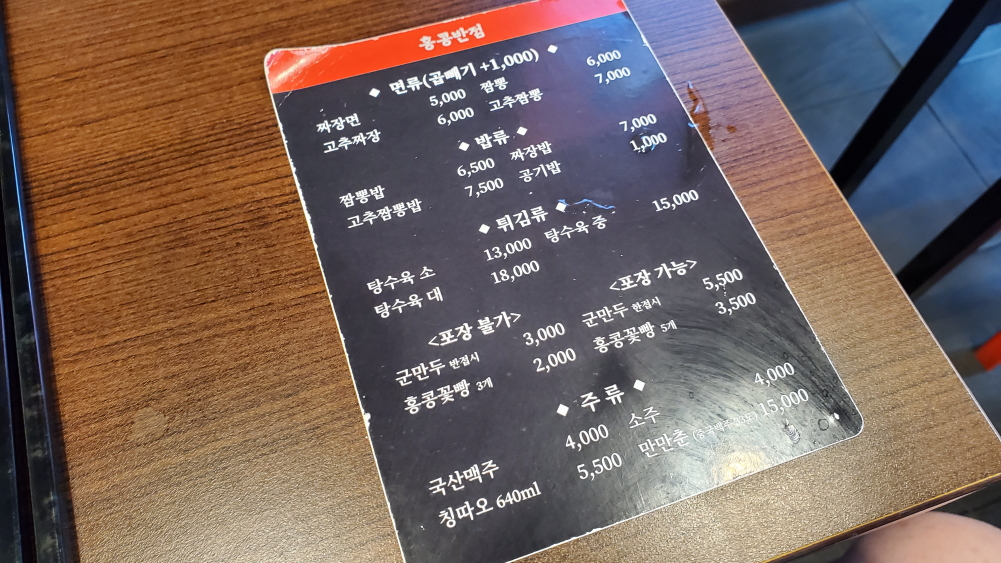 홍콩반점
◆ 면류(곱빼기 +1,000) ◆
짜장면 5,000 짬뽕 6,000
고추짜장 6,000 고추짬뽕 7,000
◆ 밥류 ◆
짬뽕밥 6,500 짜장밥 7,000
고추짬뽕밥 7,500 공기밥 1,000
◆ 튀김류 ◆
탕수육 소 13,000 탕수육 중 15,000
탕수육 대 18,000
<포장 불가> <포장 가능>
군만두 반접시 3,000 군만두 한접시 5,500
홍콩꽃빵 3개 2,000 홍콩꽃빵 5개 3,500
◆ 주류 ◆
국산맥주 4,000 소주 4,000
칭따오 640ml 5,500 만만춘 15,000